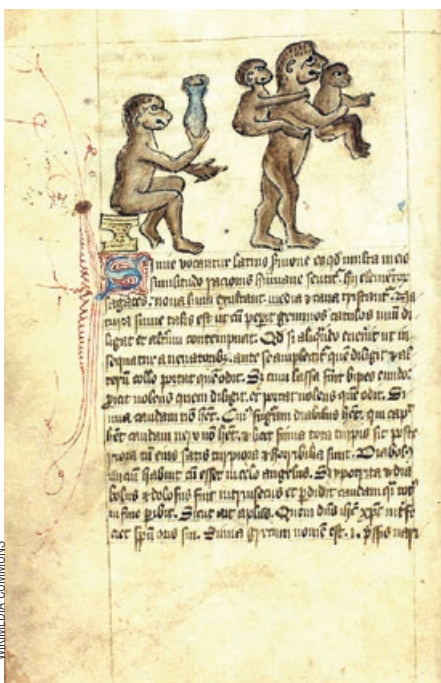 Simie vocantur latino sermone eo qd multa in eis
similitudo racionis humane sentit. hii elementor
sagaces. noua luna exultant. media & caua tristant. Na
tura simie talis est ut cu periat geminos catulos unu di
ligat et alteru contempnat. Qd si aliqn euenit ut in
sequatur a uenatoribz. ante se amplectit que diligit & al
teru collo portat que odit. Sz cum lassa fuit bipes eundo.
proicit uolens quem diligit. et portat nolens que odit. Si
mia caudam no het. Cui figuram diabolus het. qui caput
het caudam uero no het. & licet simia tota turpis sit poste
riora tn eius satis turpiora & horribilia sunt. Diabolus
iniciu habuit cu esset in celo angelus. Sz ypocrita & dia
bolus & dolosus fuit intrinsecus et perdidit caudam quia tot
in fine peribit. Sicut ait apls. Quem dns ihc xpc interfi
ciet spu oris sui. Simia grecum nomen est. i. pressis
WIKIMEDIA COMMONS